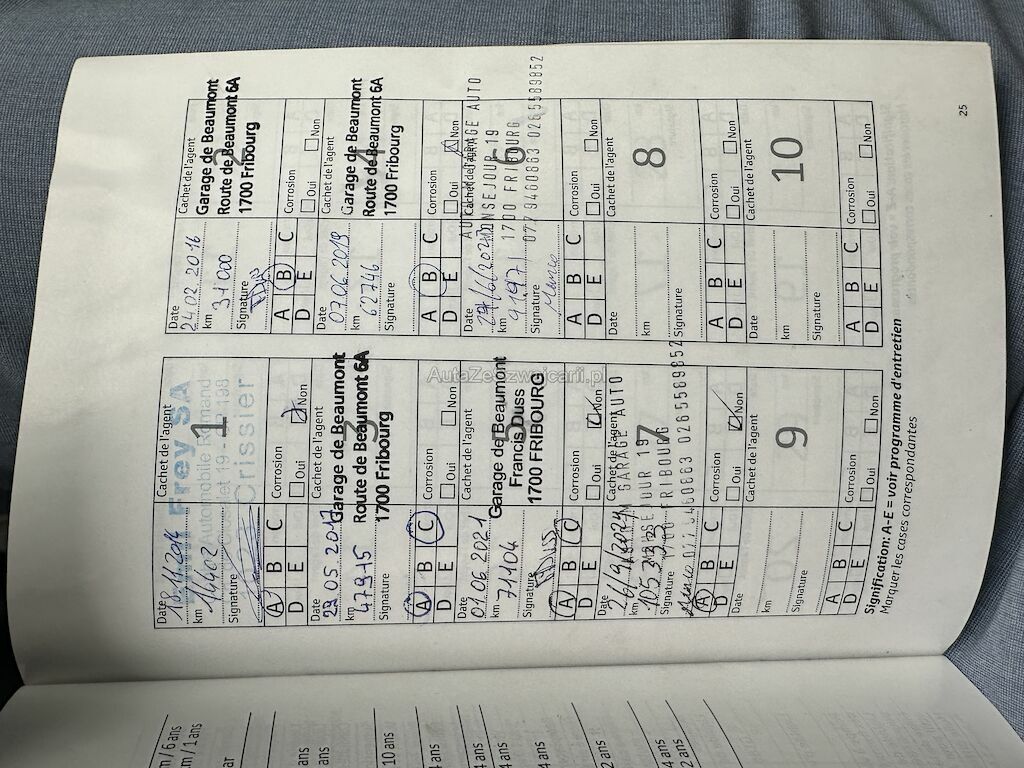 Date
18.11.2014
km
14402
Signature
A B C
D E
Cachet de l'agent
1
Frey SA
Automobile Romand
Crissier
Corrosion
Oui Non
Date
24.02.2016
km
31000
Signature
A B C
D E
Cachet de l'agent
2
Garage de Beaumont
Route de Beaumont 6A
1700 Fribourg
Corrosion
Oui Non
Date
km
47915
Signature
A B C
D E
Cachet de l'agent
3
Garage de Beaumont
Route de Beaumont 6A
1700 Fribourg
Corrosion
Oui Non
Date
07.06.2019
km
62746
Signature
A B C
D E
4
Garage de Beaumont
Route de Beaumont 6A
1700 Fribourg
Corrosion
Oui Non
Date
01.06.2021
km
71104
Signature
A B C
D E
Garage de Beaumont
Francis Duss
1700 FRIBOURG
Corrosion
Oui Non
Date
km
91971
Signature
A B C
D E
Cachet de l'agent
6
GARAGE AUTO
1700 FRIBOURG
0779460863 0265589852
Corrosion
Oui Non
Date
26/9/2024
km
Signature
A B C
D E
Cachet de l'agent
7
GARAGE AUTO
FRIBOURG
0265589852
Corrosion
Oui Non
Date
km
Signature
A B C
D E
Cachet de l'agent
8
Corrosion
Oui Non
Date
km
Signature
A B C
D E
Cachet de l'agent
9
Corrosion
Oui Non
Date
km
Signature
A B C
D E
Cachet de l'agent
10
Corrosion
Oui Non
Signification: A-E = voir programme d'entretien
Marquer les cases correspondantes
25
AutaZeSzwajcarii.pl
m / 6 ans
m / 1 ans
ans
ans
10 ans
4 ans
4 ans
4 ans
2 ans
4 ans
2 ans